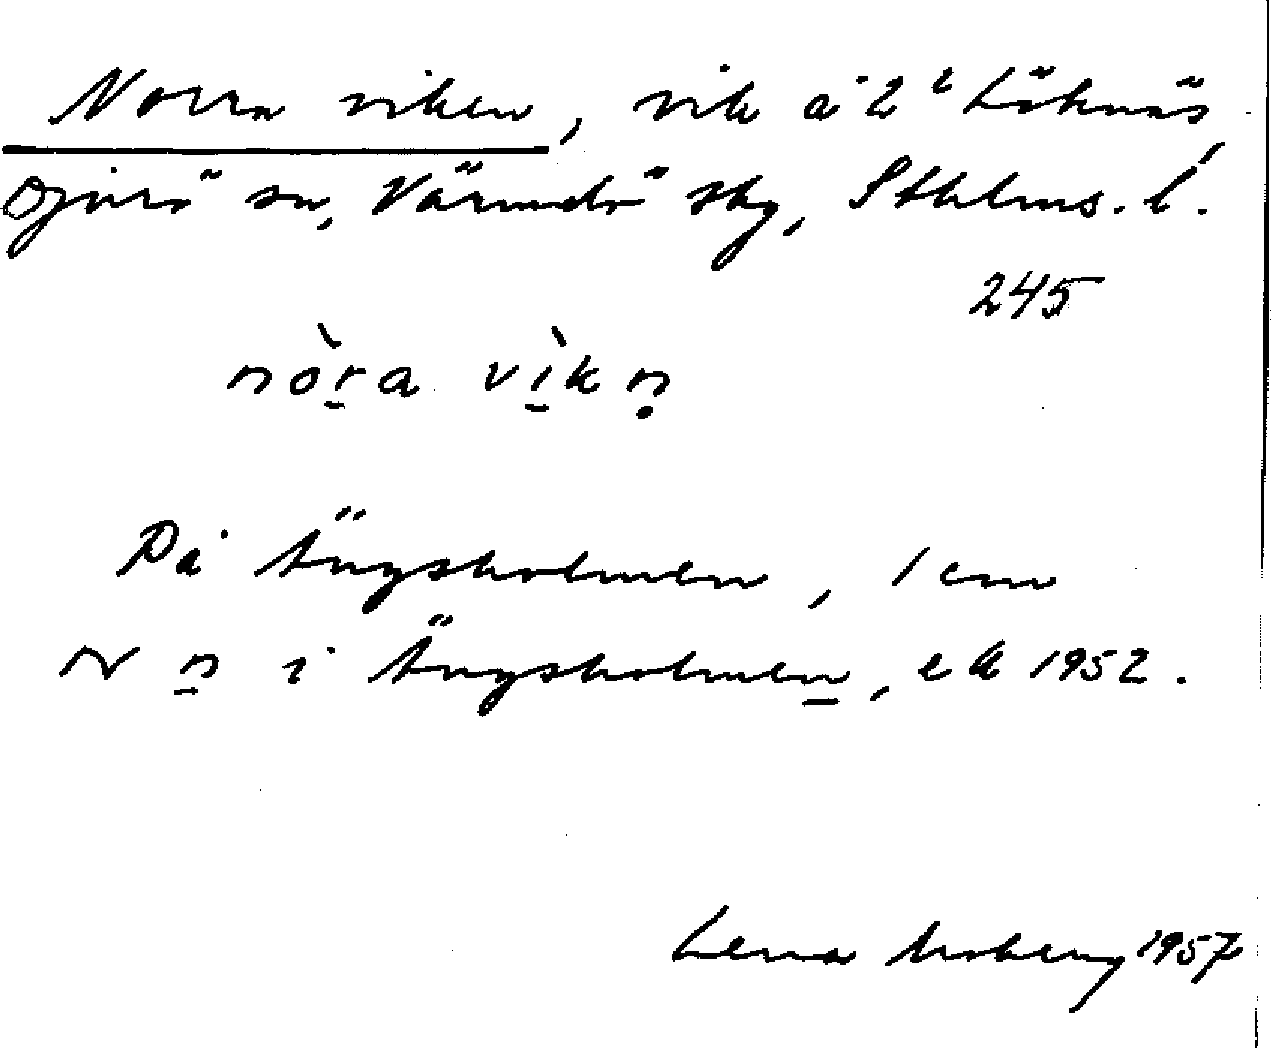 Norra viken, vik å 2ᵇ Löknäs,
Djurö sn, Värmdö skg, Sthlms. l.
245
nòr̠a vì̠kṇ
På Ängsholmen, 1 cm
N n̲ i Ängsholmen̲, ek 1952.
Lena Moberg 1957